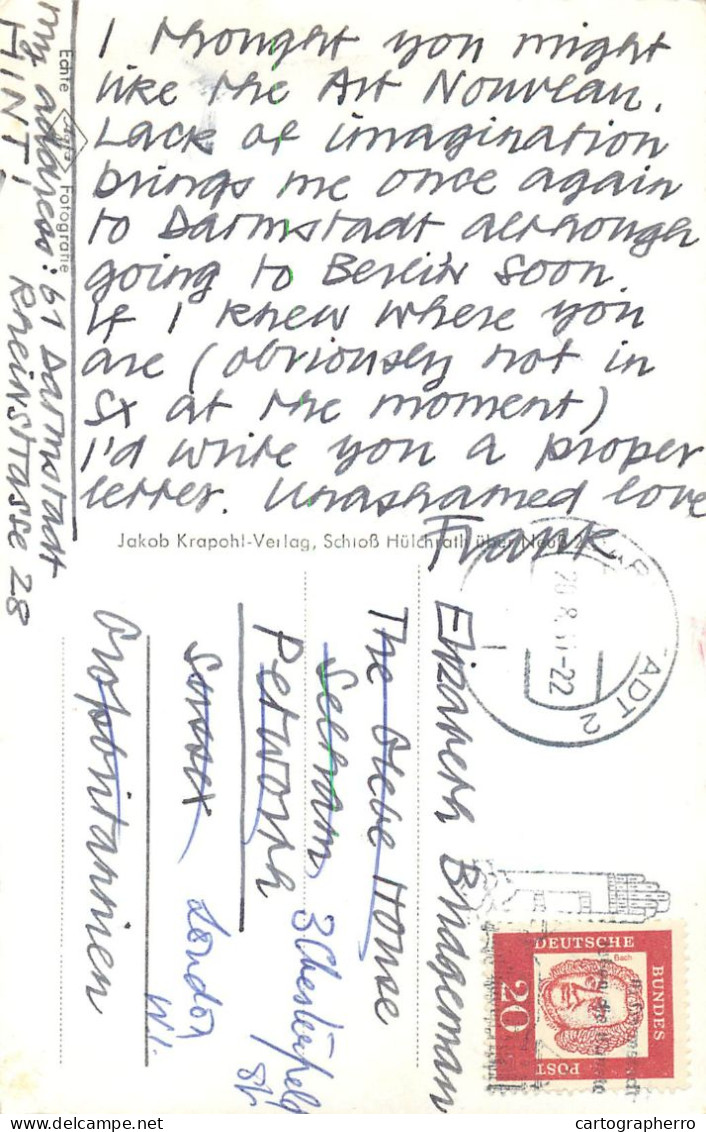 I thought you might
like the Art Nouveau.
Lack of imagination
brings me once again
to Darmstadt although
going to Berlin soon.
If I knew where you
are (obviously not in
Sx at the moment)
I'd write you a proper
letter. Unashamed love
Frank
my address: 61 Darmstadt
Rheinstrasse 28
HINT!
Echte Agfa Fotografie
Jakob Krapohl-Verlag, Schloß Hülchrath über Neuß 2
Elizabeth Bridgeman
The Glebe House
Selham
Petworth
Sussex
Großbritannien
3 Chesterfield
St.
London
W.1.
ADT 2
-22
DEUTSCHE
BUNDES
POST
20
Bach
cartographerro